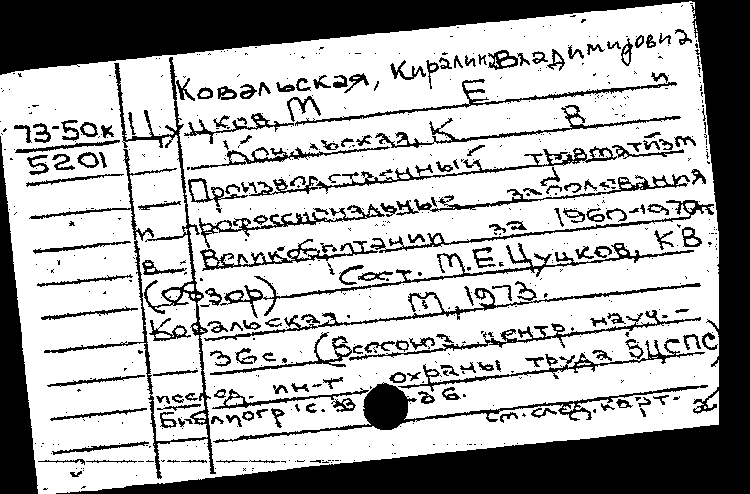 Ковальская, Киралина Владимировна
73-50к Цуцков, М Е и
5201 Ковальская, К В
Производственный травматизм
и профессиональные заболевания
в Великобритании за 1960-1970гг
(Обзор) Сост. М.Е. Цуцков, К.В.
Ковальская. М, 1973.
36с. (Всесоюз. центр. науч.-
исслед. ин-т охраны труда ВЦСПС)
Библиогр с.
см. след. карт.